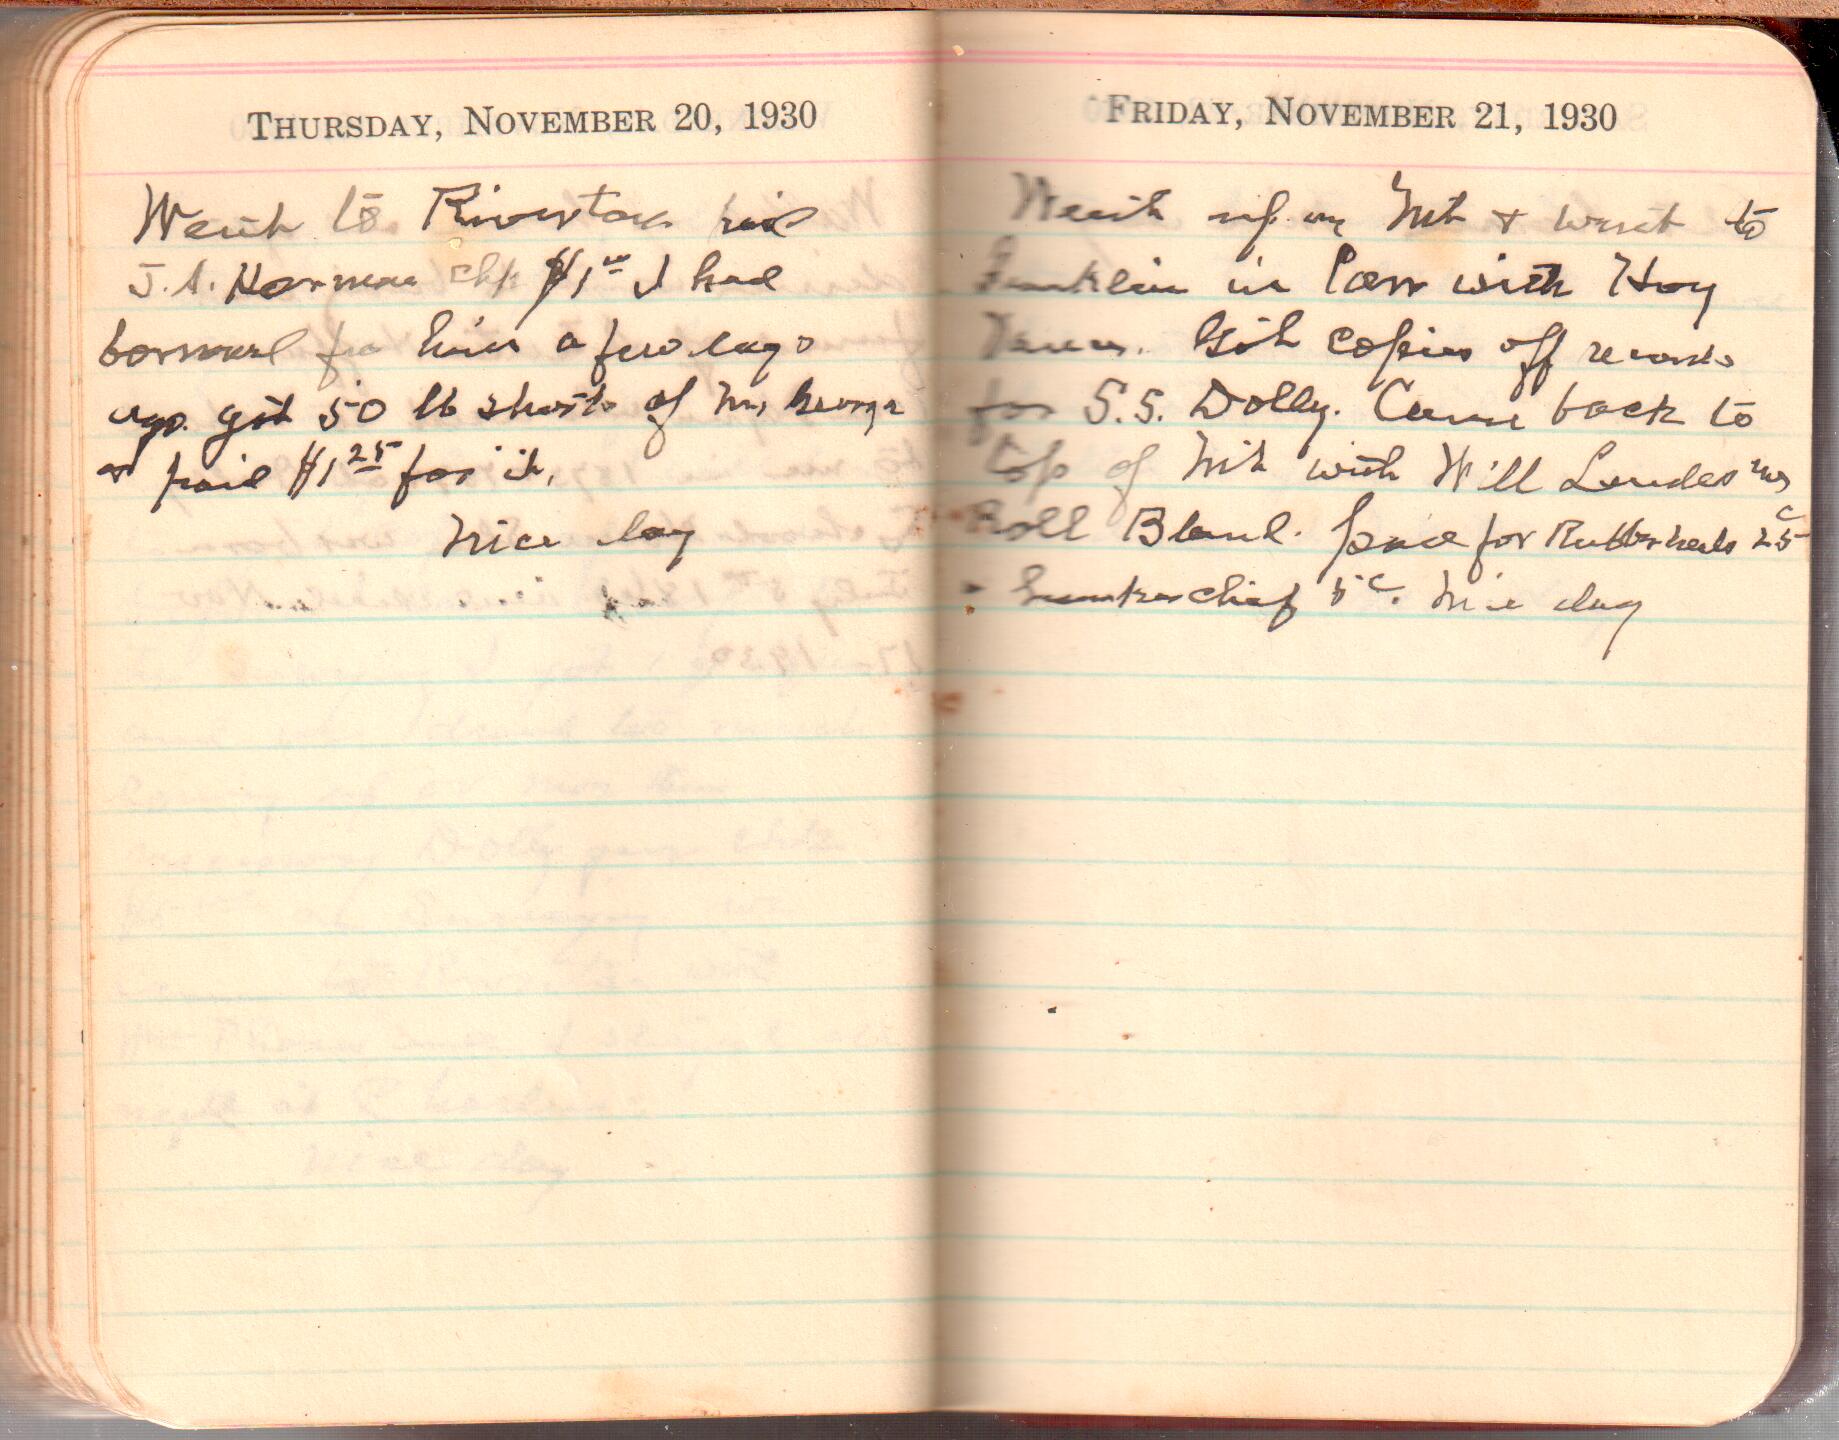 THURSDAY, NOVEMBER 20, 1930
Went to Riverton paid
J. A. Harman $1.00 I had
borrowed from him a few days
ago. got 50 lb shorts of Mrs George
& paid $1.25 for it.
Nice day
FRIDAY, NOVEMBER 21, 1930
Went up on Mt & went to
Franklin in Car with Hoy
Got copies off records
for S.S. Dolly. Came back to
top of Mt with Will
Bland. paid for Rubber heels 25c
Hankerchief 5c. Nice day